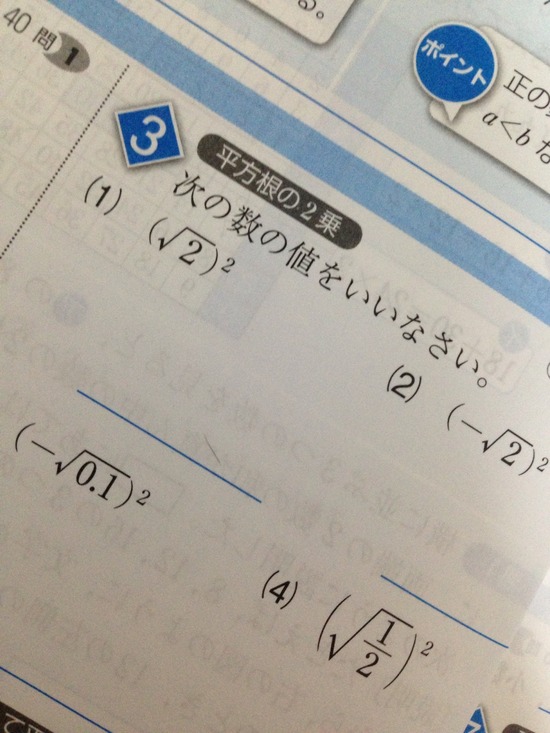 40問 1
る。
ポイント
正の
a<b な
3 平方根の2乗
次の数の値をいいなさい。
(1) (√2)²
(2) (−√2)²
(−√0.1)²
(4) (√(1/2))²